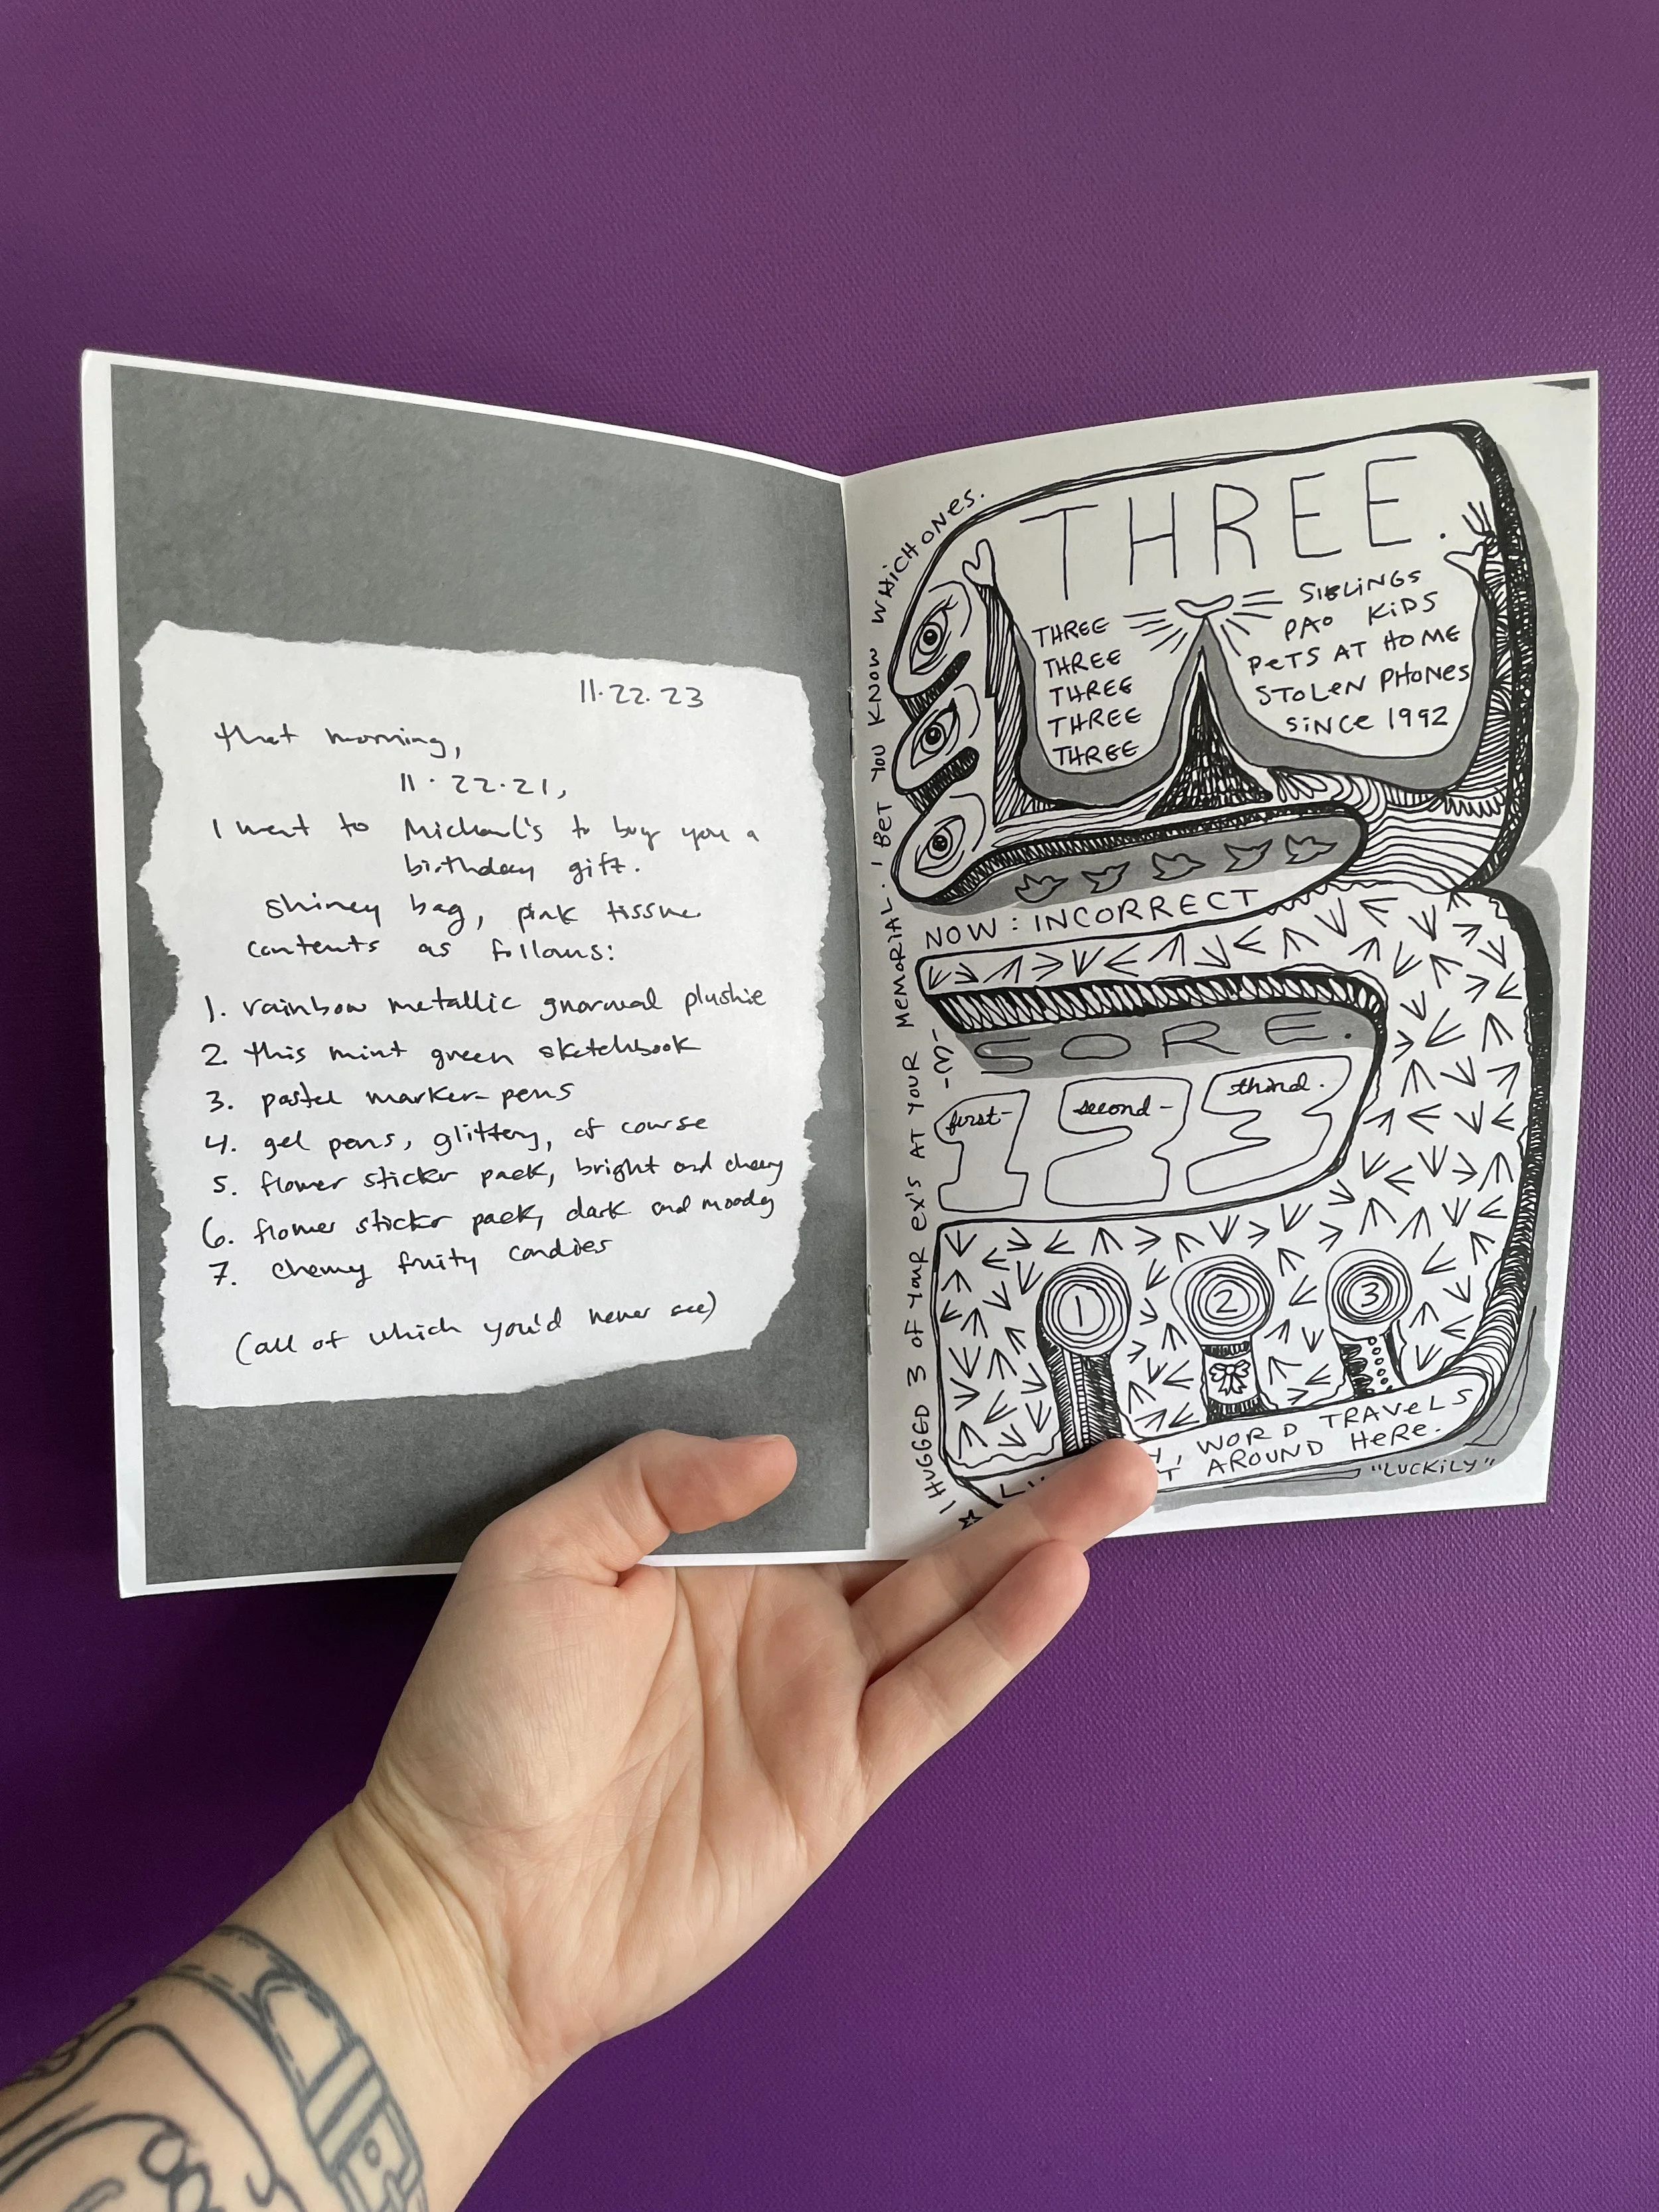 11.22.23
that morning,
11.22.21,
I went to Michael's to buy you a
birthday gift.
shiney bag, pink tissue
contents as follows:
1. rainbow metallic gnarwal plushie
2. this mint green sketchbook
3. pastel marker-pens
4. gel pens, glittery, of course
5. flower sticker pack, bright and cheery
6. flower sticker pack, dark and moody
7. chewy fruity candies
(all of which you'd never see)
I HUGGED 3 OF YOUR EX'S AT YOUR MEMORIAL. I BET YOU KNOW WHICH ONES.
THREE.
THREE SIBLINGS
THREE PAO KIDS
THREE PETS AT HOME
THREE STOLEN PHONES
THREE SINCE 1992
NOW: INCORRECT
SORE.
first- second- third.
1 2 3
1 2 3
WORD TRAVELS
AROUND HERE.
"LUCKILY"